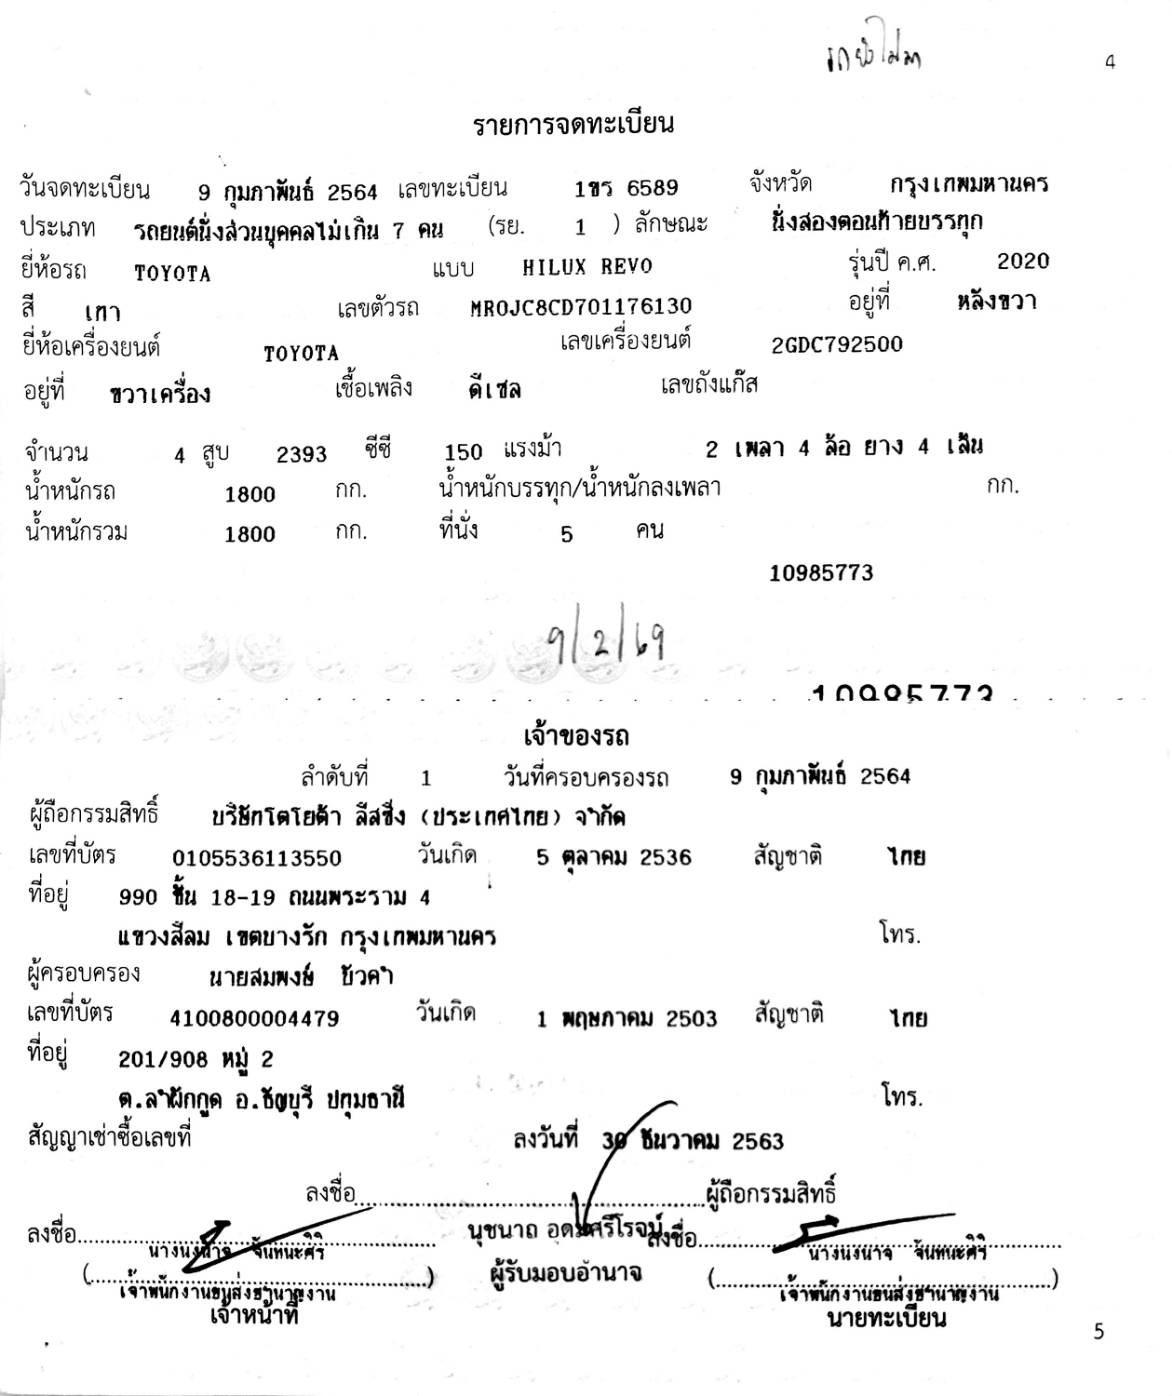 รถยังไม่มา
4
รายการจดทะเบียน
วันจดทะเบียน 9 กุมภาพันธ์ 2564 เลขทะเบียน 1ขร 6589 จังหวัด กรุงเทพมหานคร
ประเภท รถยนต์นั่งส่วนบุคคลไม่เกิน 7 คน (รย. 1 ) ลักษณะ นั่งสองตอนท้ายบรรทุก
ยี่ห้อรถ TOYOTA แบบ HILUX REVO รุ่นปี ค.ศ. 2020
สี เทา เลขตัวรถ MR0JC8CD701176130 อยู่ที่ หลังขวา
ยี่ห้อเครื่องยนต์ TOYOTA เลขเครื่องยนต์ 2GDC792500
อยู่ที่ ขวาเครื่อง เชื้อเพลิง ดีเซล เลขถังแก๊ส
จำนวน 4 สูบ 2393 ซีซี 150 แรงม้า 2 เพลา 4 ล้อ ยาง 4 เส้น
น้ำหนักรถ 1800 กก. น้ำหนักบรรทุก/น้ำหนักลงเพลา กก.
น้ำหนักรวม 1800 กก. ที่นั่ง 5 คน
10985773
9/2/69
10985773
เจ้าของรถ
ลำดับที่ 1 วันที่ครอบครองรถ 9 กุมภาพันธ์ 2564
ผู้ถือกรรมสิทธิ์ บริษัทโตโยต้า ลีสซิ่ง (ประเทศไทย) จำกัด
เลขที่บัตร 0105536113550 วันเกิด 5 ตุลาคม 2536 สัญชาติ ไทย
ที่อยู่ 990 ชั้น 18-19 ถนนพระราม 4
แขวงสีลม เขตบางรัก กรุงเทพมหานคร โทร.
ผู้ครอบครอง นายสมพงษ์ บัวคำ
เลขที่บัตร 4100800004479 วันเกิด 1 พฤษภาคม 2503 สัญชาติ ไทย
ที่อยู่ 201/908 หมู่ 2
ต.ลำผักกูด อ.ธัญบุรี ปทุมธานี โทร.
สัญญาเช่าซื้อเลขที่ ลงวันที่ 30 ธันวาคม 2563
ลงชื่อ ผู้ถือกรรมสิทธิ์
ลงชื่อ นุชนาถ อุดมศรีโรจน์ ลงชื่อ
นางนงนาจ จันทนะศิริ นางนงนาจ จันทนะศิริ
( ) ผู้รับมอบอำนาจ ( )
เจ้าพนักงานขนส่งชำนาญงาน เจ้าพนักงานขนส่งชำนาญงาน
เจ้าหน้าที่ นายทะเบียน
5